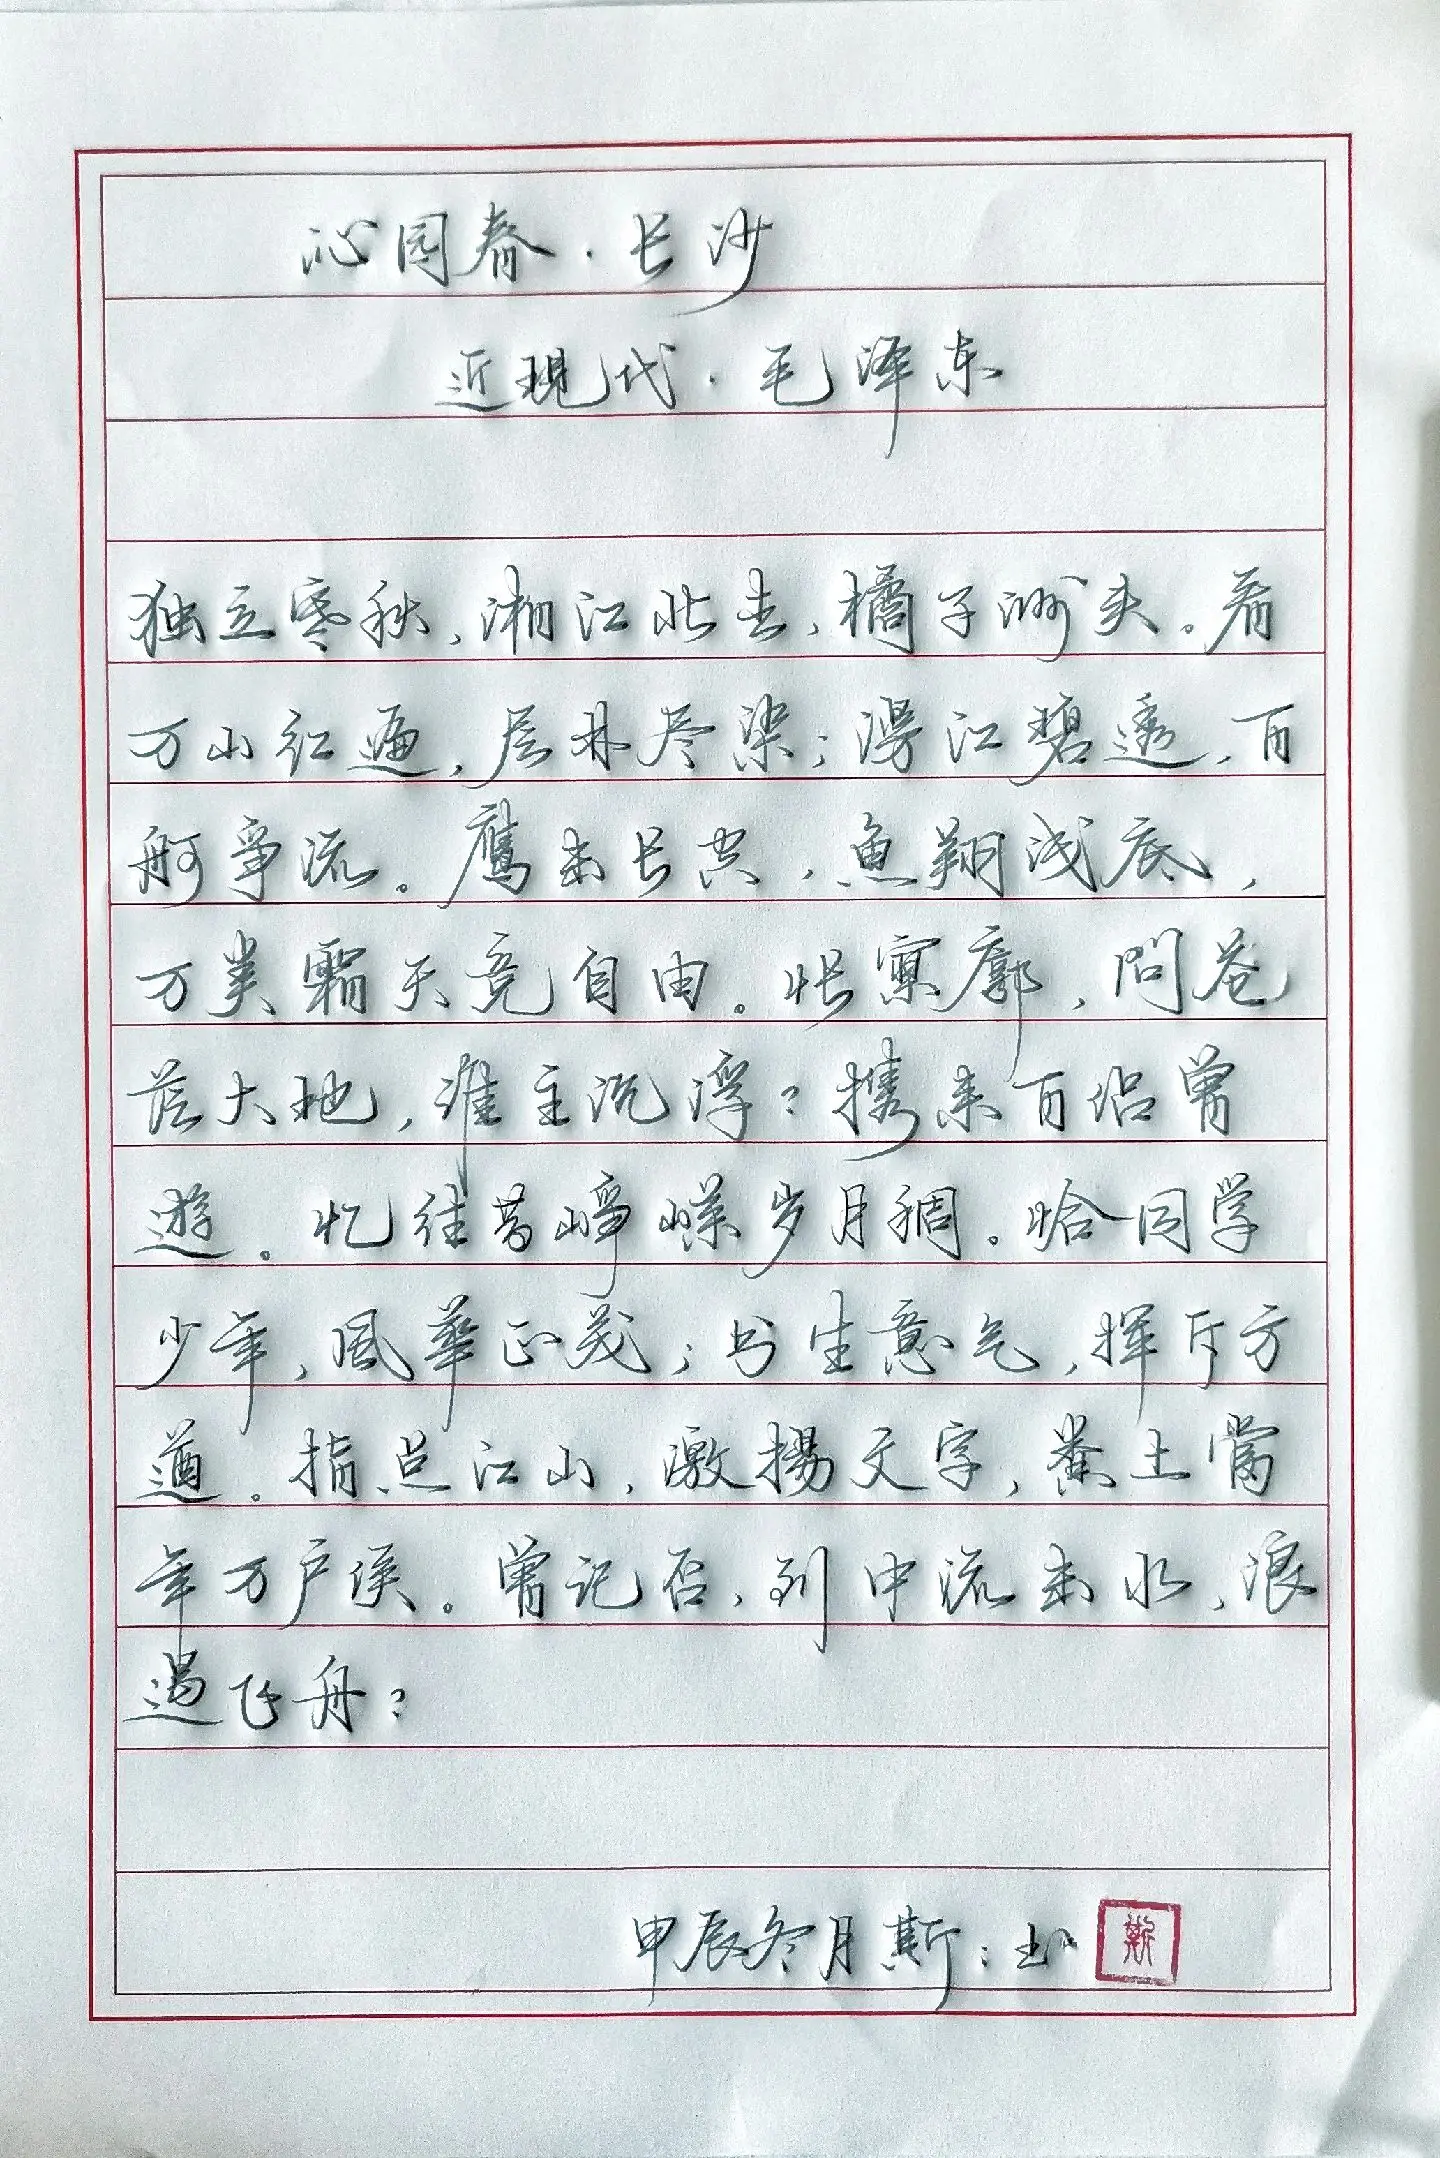 沁园春·长沙
近现代·毛泽东
独立寒秋,湘江北去,橘子洲头。看
万山红遍,层林尽染;漫江碧透,百
舸争流。鹰击长空,鱼翔浅底,
万类霜天竞自由。怅寥廓,問苍
茫大地,谁主沉浮?携来百侣曾
遊。忆往昔峥嵘岁月稠。恰同学
少年,風華正茂;书生意气,挥斥方
遒。指点江山,激揚文字,粪土當
年万户侯。曾记否,到中流击水,浪
遏飞舟?
甲辰冬月斯:
斯